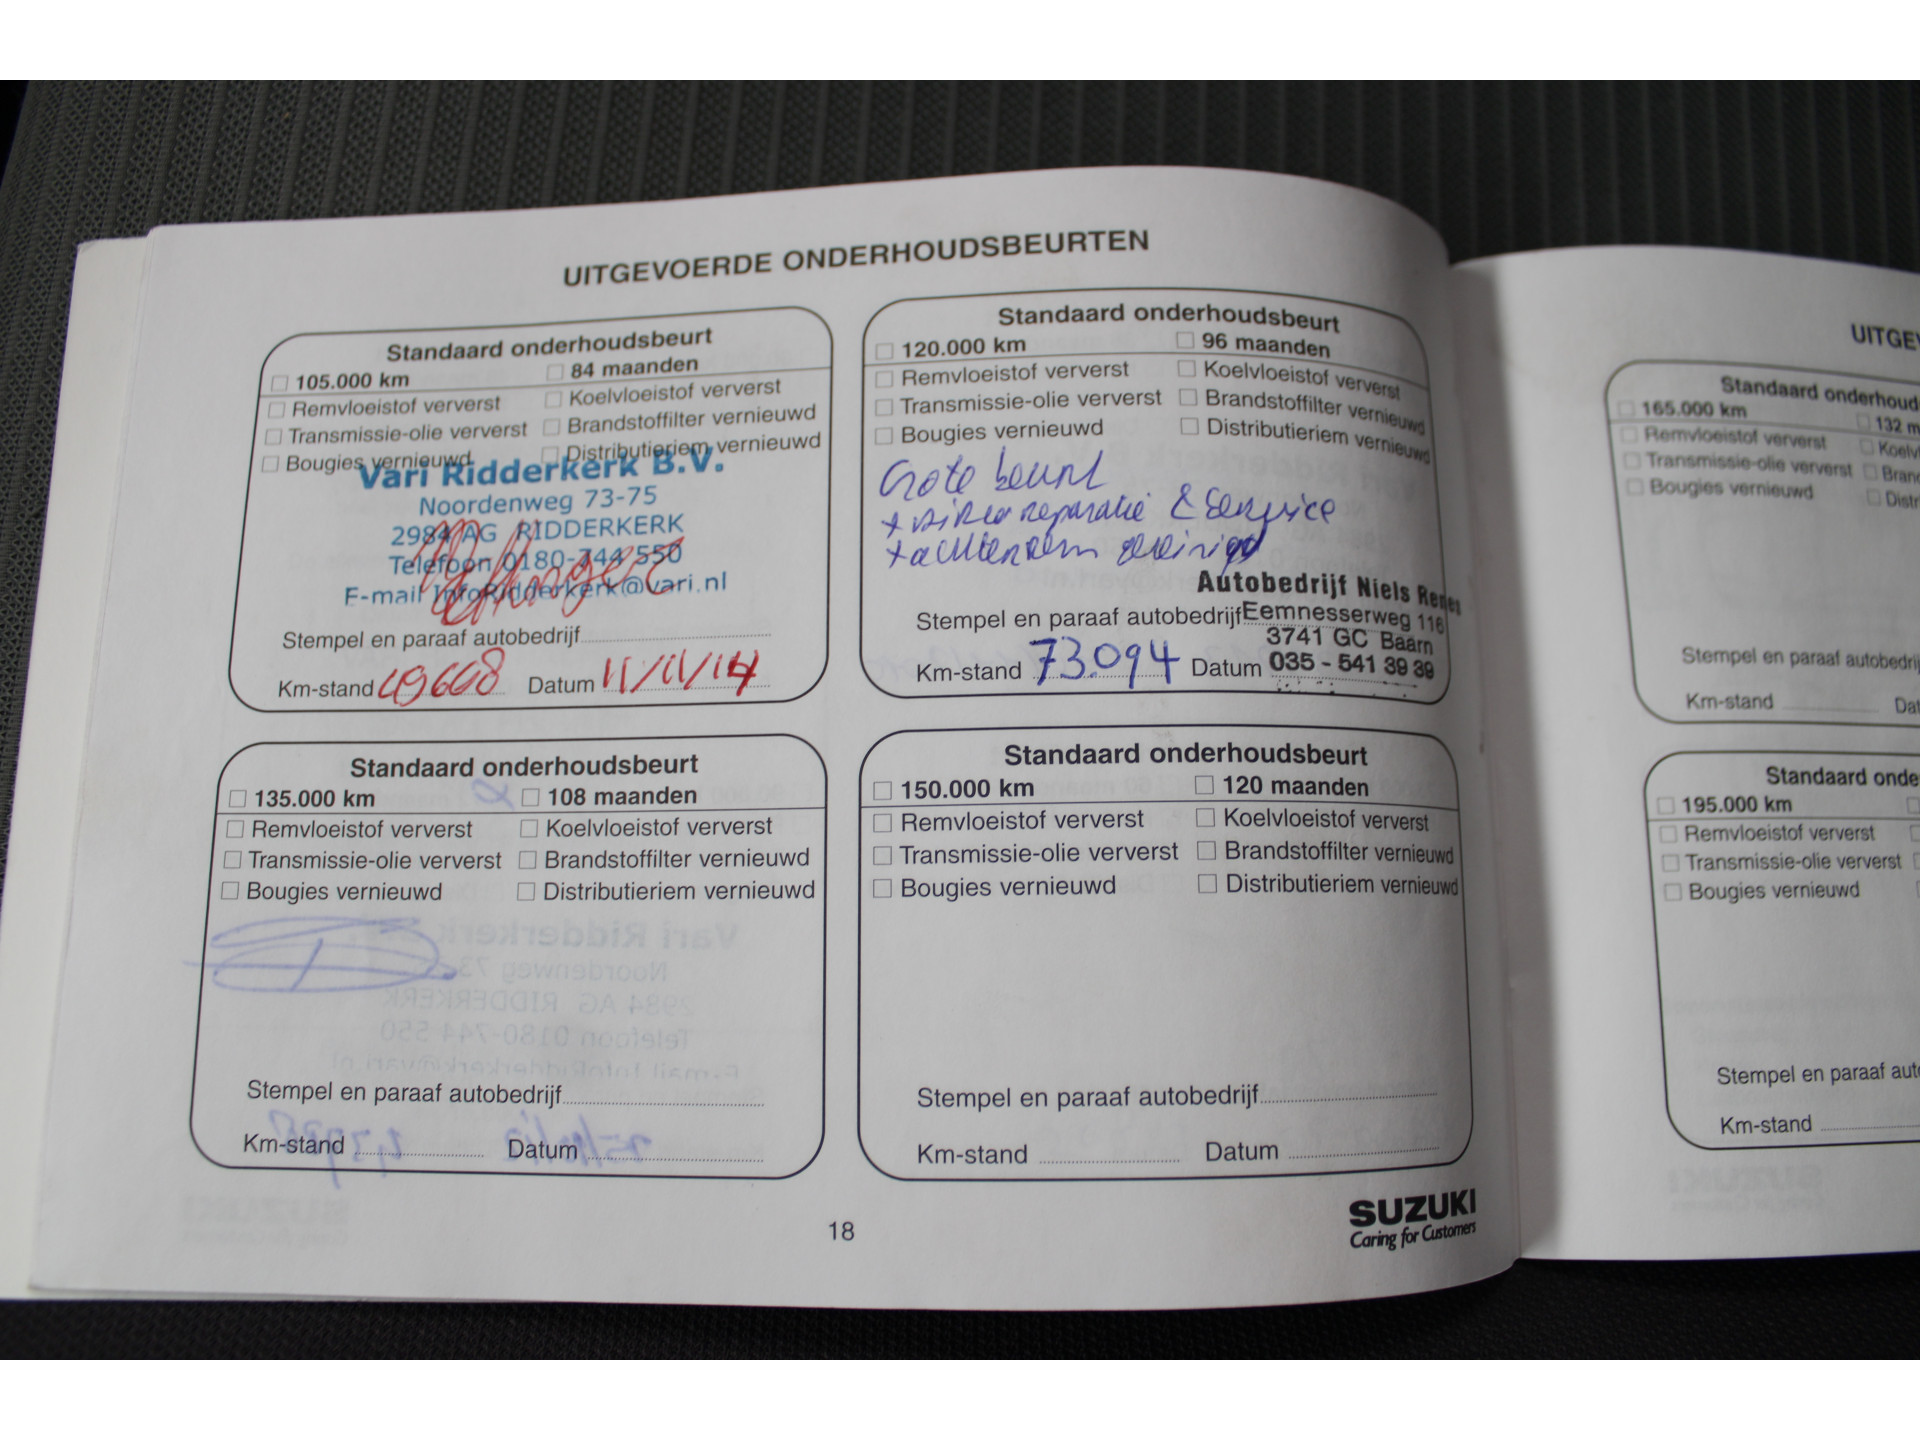 UITGEVOERDE ONDERHOUDSBEURTEN
Standaard onderhoudsbeurt
105.000 km 84 maanden
Remvloeistof ververst Koelvloeistof ververst
Transmissie-olie ververst Brandstoffilter vernieuwd
Bougies vernieuwd Distributieriem vernieuwd
Vari Ridderkerk B.V.
Noordenweg 73-75
2984 AG RIDDERKERK
Telefoon 0180-744 550
E-mail InfoRidderkerk@vari.nl
Stempel en paraaf autobedrijf
Km-stand 49668 Datum 11/11/14
Standaard onderhoudsbeurt
120.000 km 96 maanden
Remvloeistof ververst Koelvloeistof ververst
Transmissie-olie ververst Brandstoffilter vernieuwd
Bougies vernieuwd Distributieriem vernieuwd
Grote beurt
+ airco reparatie & service
+ achterrem gereinigd
Autobedrijf Niels Renes
Stempel en paraaf autobedrijf Eemnesserweg 116
3741 GC Baarn
Km-stand 73.094 Datum 035 - 541 39 39
Standaard onderhoudsbeurt
135.000 km 108 maanden
Remvloeistof ververst Koelvloeistof ververst
Transmissie-olie ververst Brandstoffilter vernieuwd
Bougies vernieuwd Distributieriem vernieuwd
Stempel en paraaf autobedrijf
Km-stand Datum
Standaard onderhoudsbeurt
150.000 km 120 maanden
Remvloeistof ververst Koelvloeistof ververst
Transmissie-olie ververst Brandstoffilter vernieuwd
Bougies vernieuwd Distributieriem vernieuwd
Stempel en paraaf autobedrijf
Km-stand Datum
18
SUZUKI
Caring for Customers
UITGEV
Standaard onderhoud
165.000 km 132 m
Remvloeistof ververst Koelv
Transmissie-olie ververst Bran
Bougies vernieuwd Distr
Stempel en paraaf autobedrij
Km-stand Dat
Standaard onde
195.000 km
Remvloeistof ververst
Transmissie-olie ververst
Bougies vernieuwd
Stempel en paraaf auto
Km-stand